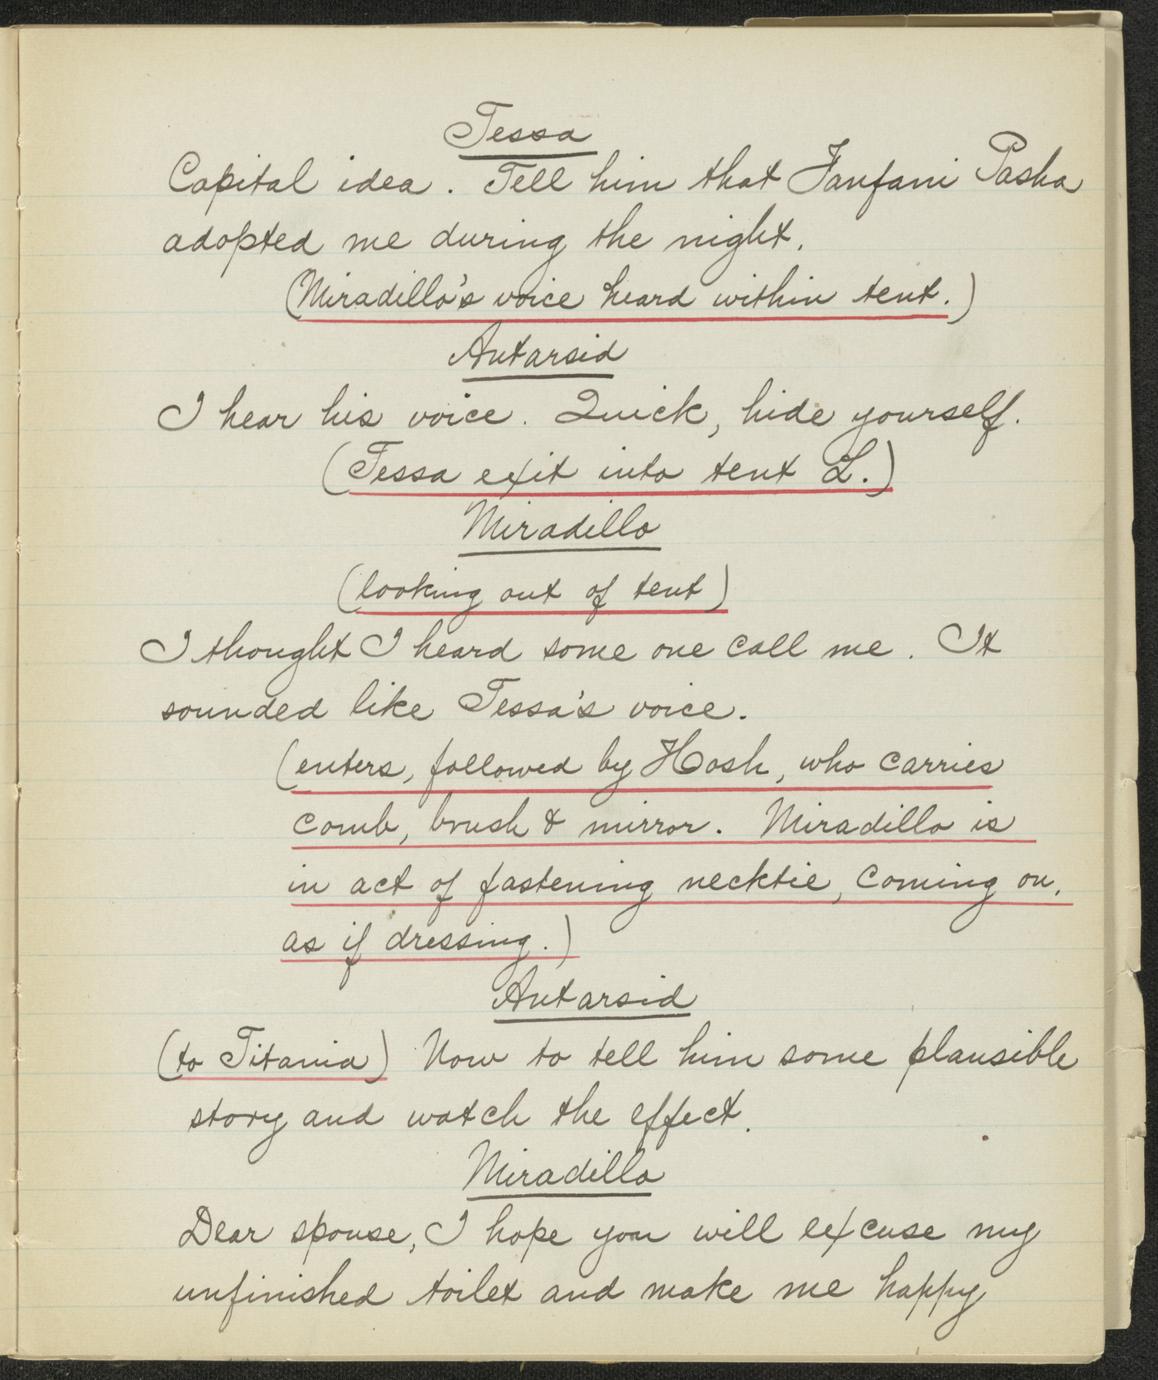 Tessa
Capital idea. Tell him that Fanfani Pasha
adopted me during the night.
(Miradillo's voice heard within tent.)
Antarsid
I hear his voice. Quick, hide yourself.
(Tessa exit into tent L.)
Miradillo
(looking out of tent)
I thought I heard some one call me. It
sounded like Tessa's voice.
(enters, followed by Hosh, who carries
comb, brush & mirror. Miradillo is
in act of fastening necktie, coming on,
as if dressing.)
Antarsid
(to Titania) Now to tell him some plausible
story and watch the effect.
Miradillo
Dear spouse, I hope you will excuse my
unfinished toilet and make me happy